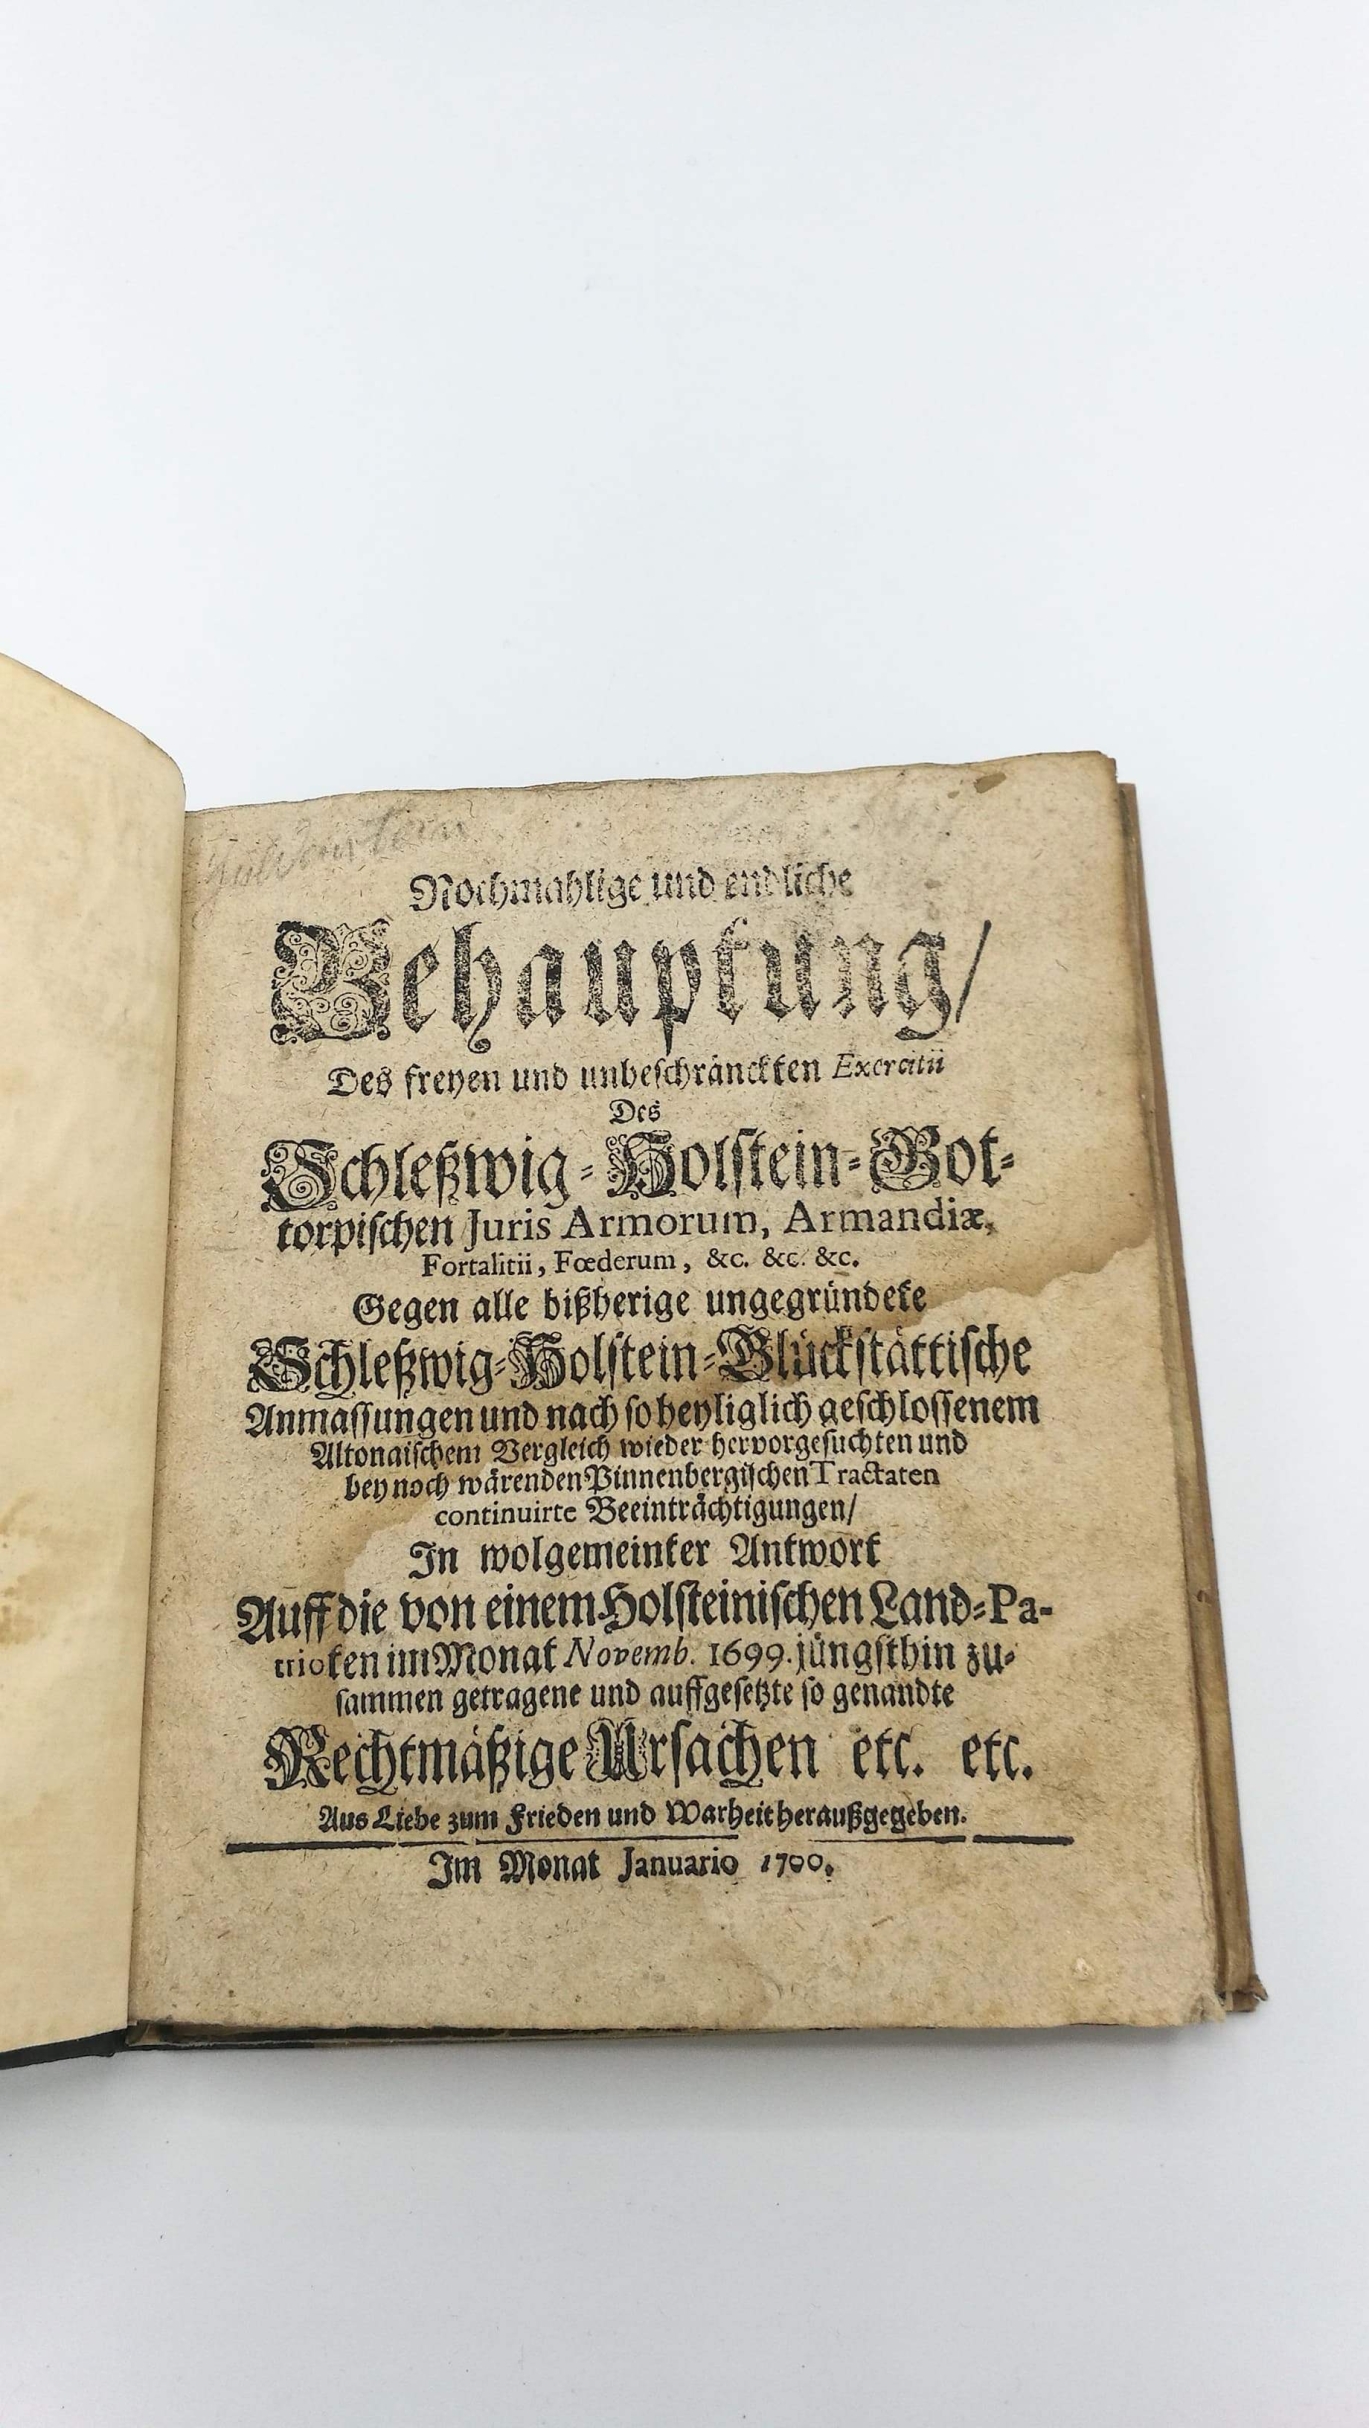 Nochmahlige und endliche
Behauptung/
Des freyen und unbeschränckten Exercitii
Des
Schleßwig-Holstein-Got-
torpischen Juris Armorum, Armandiæ,
Fortalitii, Fœderum, &c. &c. &c.
Gegen alle bißherige ungegründete
Schleßwig-Holstein-Glückstättische
Anmassungen und nach so heyliglich geschlossenem
Altonaischem Vergleich wieder hervorgesuchten und
bey noch wärenden Pinnenbergischen Tractaten
continuirte Beeinträchtigungen/
In wolgemeinter Antwort
Auff die von einem Holsteinischen Land-Pa-
trioten im Monat Novemb. 1699. jüngsthin zu-
sammen getragene und auffgesetzte so genandte
Rechtmäßige Ursachen etc. etc.
Aus Liebe zum Frieden und Warheit heraußgegeben.
Im Monat Januario 1700.